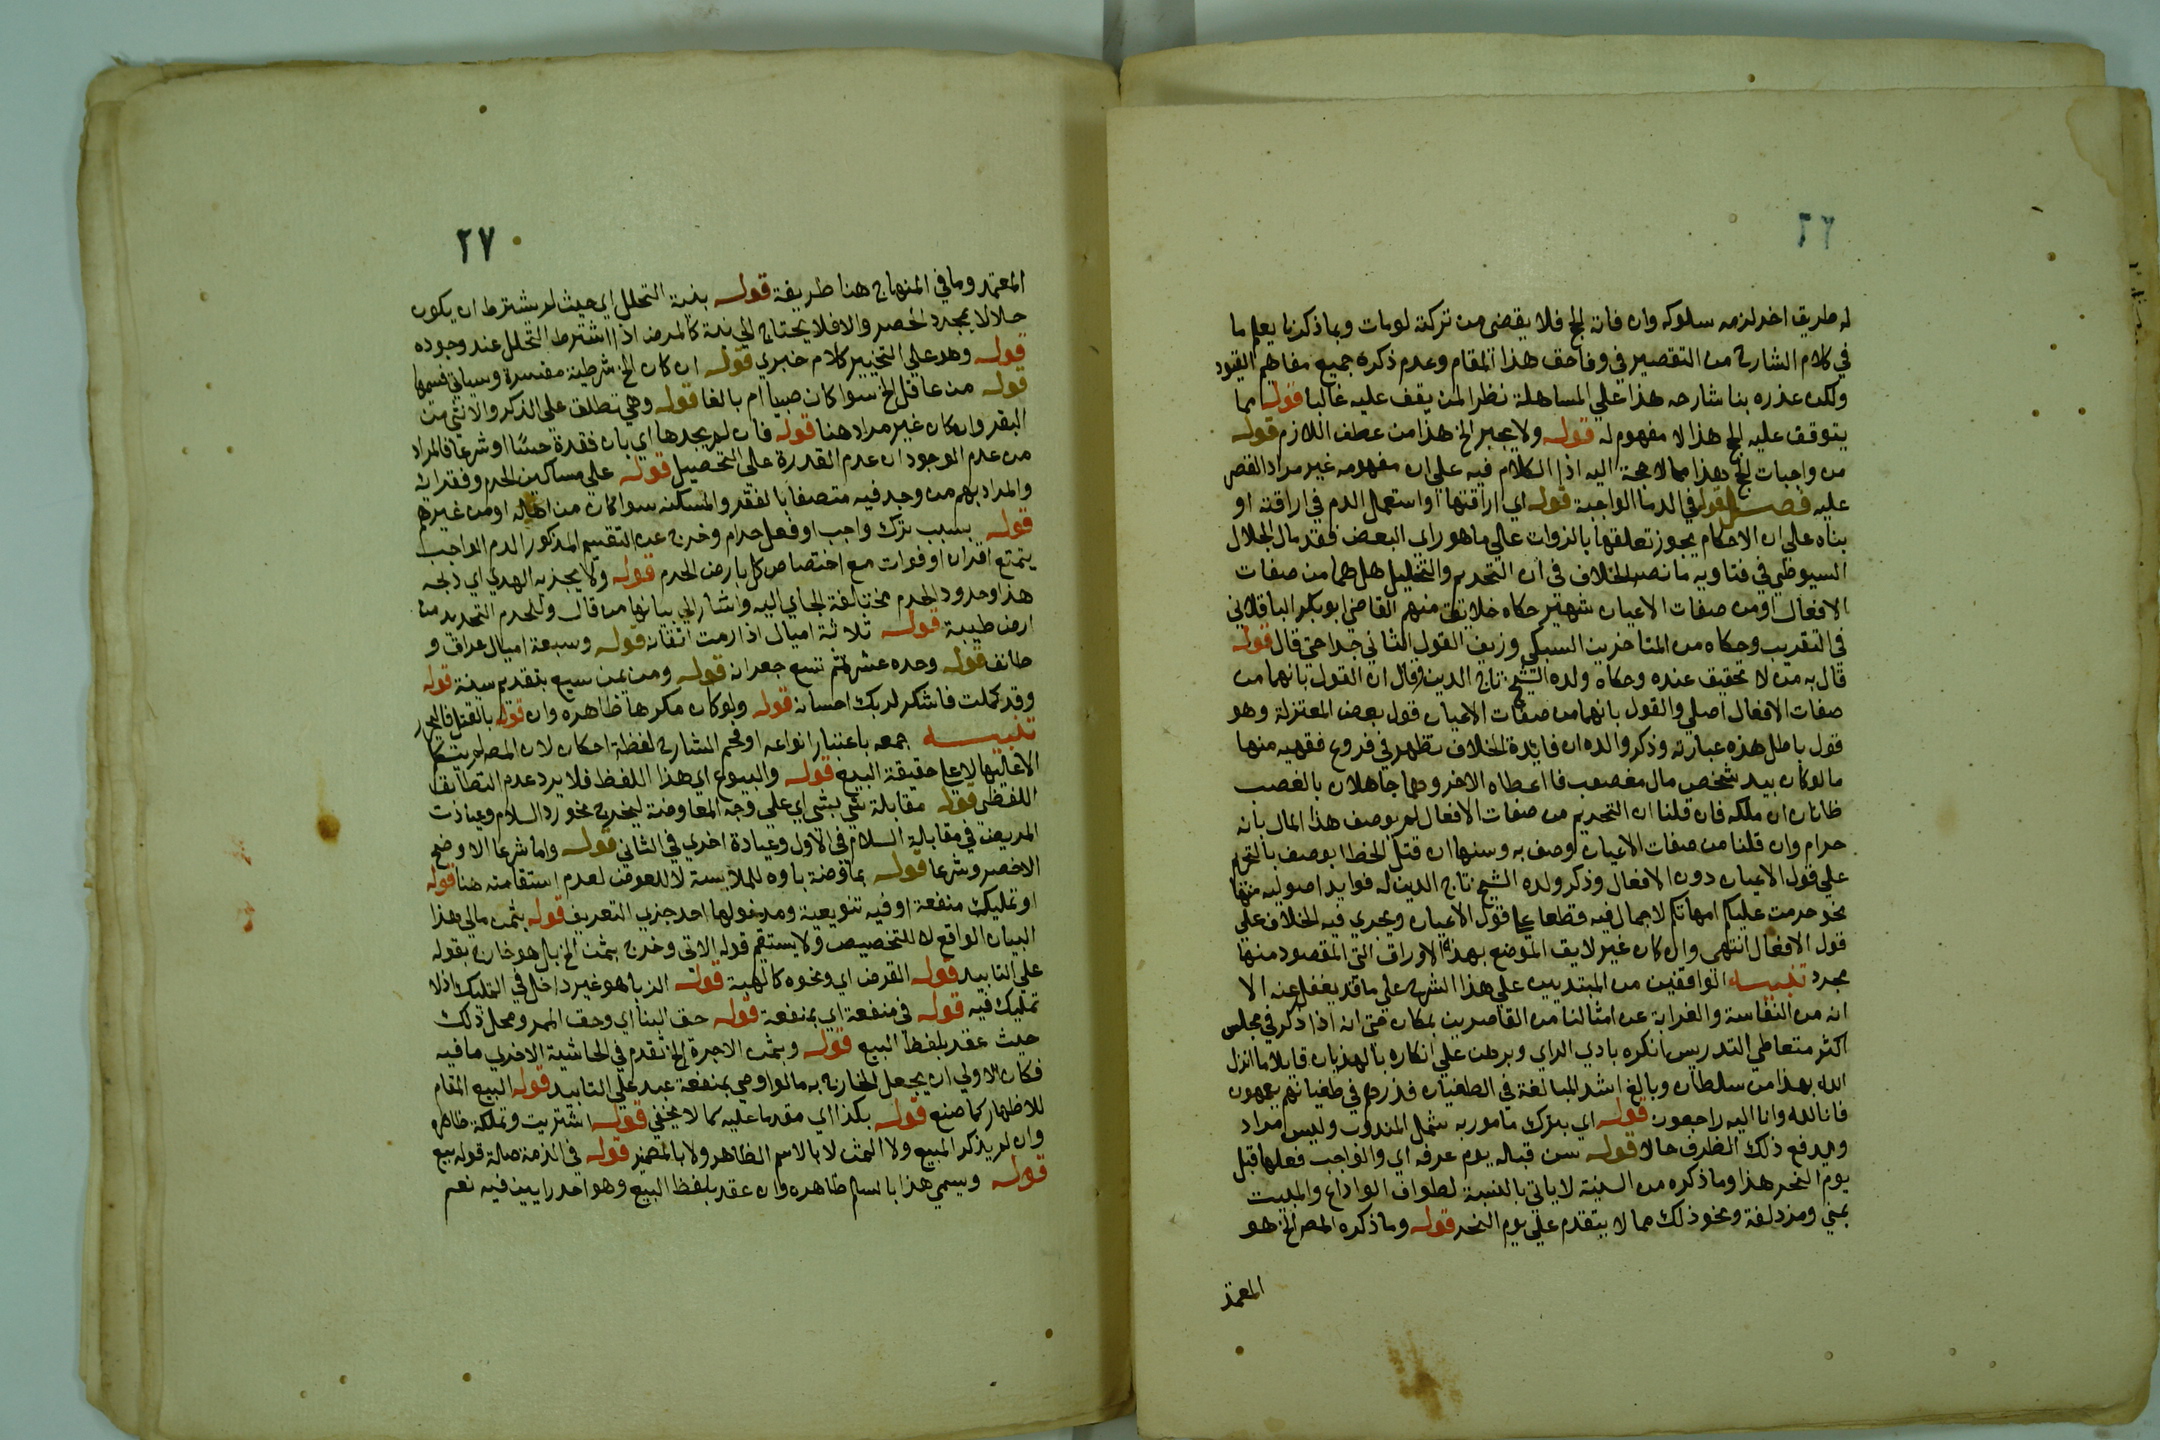 ٢٦
له طريق اخر لزمه سلوكه وان فاته الحج فلا يقضى من تركته لو مات وبما ذكرنا يعلم ما
في كلام الشارح من التقصير في وفا حق هذا المقام وعدم ذكره جميع مفاهيم القيود
ولكن عذره بنا شارحه هذا علي المساهلة نظرا لمن يقف عليه غالبا قوله مما
يتوقف عليه الحج هذا لا مفهوم له قوله ولا يجبر الخ هذا من عطف اللازم قوله
من واجبات الحج هذا مما لا حاجة اليه اذ الكلام فيه علي ان مفهومه غير مراد القصر
عليه فصل قوله في الدما الواجبة قوله اي اراقتها او استعمل الدم في اراقته او
بناه علي ان الاحكام يجوز تعلقها بالذوات علي ما هو راى البعض فقد مال الجلال
السيوطي في فتاويه ما نصه الخلاف في ان التحريم والتحليل هل هما من صفات
الافعال او من صفات الاعيان شهير حكاه خلائق منهم القاضي ابو بكر الباقلاني
في التقريب وحكاه من المتاخرين السبكي وزيف القول الثاني جدا حتي قال قوله
قال به من لا تحقيق عنده وحكاه ولده الشيخ تاج الدين وقال ان القول بانهما من
صفات الافعال اصلي والقول بانهما من صفات الاعيان قول بعض المعتزلة وهو
قول باطل هذه عبارته وذكر والده ان فائدة الخلاف تظهر في فروع فقهيه منها
ما لو كان بيد شخص مال مغصوب فاعطاه الاخر وهما جاهلان بالغصب
ظانان ان ملكه فان قلنا ان التحريم من صفات الافعال لم يوصف هذا المال بانه
حرام وان قلنا من صفات الاعيان وصف به ومنها ان قتل الخطا يوصف بالتحريم
علي قول الاعيان دون الافعال وذكر ولده الشيخ تاج الدين له فوايد اصوليه منها
نحو حرمت عليكم امهاتكم لا اجمال فيه قطعا علي قول الاعيان ويجري فيه الخلاف علي
قول الافعال انتهى وان كان غير لايق الموضع بهذه الاوراق التي المقصود منها
مجرد تنبيه الواقفين من المبتديين علي هذا الشرح علي ما قد يغفل عنه الا
انه من النفاسة والغرابة عن امثالنا من القاصرين بمكان حتي انه اذا ذكر في مجلس
اكثر متعاطي التدريس انكره بادي الراي وبرهن علي انكاره بالهذيان قايلا ما انزل
الله بهذا من سلطان وبالغ اشد المبالغة في الطغيان فذرهم في طغيانهم يعمهون
فانا لله وانا اليه راجعون قوله اي بترك مامور به شمل المندوب وليس مراد
ويدفع ذلك الظرف حالا قوله سن قبله يوم عرفه اي والواجب فعلها قبل
يوم النحر هذا وما ذكره من السنية لا ياتي بالنسبة لطواف الوداع والمبيت
بمني ومزدلفة ونحو ذلك مما لا يتقدم علي يوم النحر قوله وما ذكره المصر الخ هو
المعتمد
٢٧
المعتمد وما في المنهاج هنا طريقة قوله بنية التحلل اي حيث لم يشترط ان يكون
حلالا بمجرد الحصر والا فلا يحتاج الي نية كالمرض اذا اشترط التحلل عند وجوده
قوله وهو علي التخيير كلام خبري قوله ان كان الخ شرطية مفسرة وسياتي قسمها
قوله من عاقل الخ سوا كان صبيا ام بالغا قوله وهي تطلق علي الذكر والانثي من
البقر وان كان غير مراد هنا قوله فان لم يجدها اي بان فقدة حسا او شرعا فالمراد
من عدم الوجود ان عدم القدرة علي التحصيل قوله علي مساكين الحرم وفقرائه
والمراد بهم من وجد فيه متصفا بالفقر والمسكنه سوا كان من اهاله او من غيرهم
قوله بسبب ترك واجب او فعل حرام وخرج عن التقسيم المذكور الدم الواجب
بتمتع اقران او فوات مع اختصاص كل بارض الحرم قوله ولا يجزيه الهدي اي ذبحه
هذا وحدود الحرم مختلفة الجاي اليه واشار الي بيانها من قال وللحرم التحديد من
ارض طيبة قوله ثلاثة اميال اذا رمت اتقانه قوله وسبعة اميال عراق و
طائف قوله وجده عشر ثم تسع جعرانه قوله ومن يمن سبع بتقديم سينه قوله
وقد كملت فاشكر لربك احسانه قوله ولو كان مكرها ظاهره وان قوله بالقتل فليحرر
تنبيه جمعه باعتبار انواعه او فحم الشارح لفظة احكان لان المصر لم يتكلم
الا عليها لا علي حقيقة البيع قوله والبيوع اي هذا اللفظ فلا يرد عدم التطابق
اللفظي قوله مقابلة شي بشي اي علي وجه المعاوضة ليخرج نحو رد السلام وعيادت
المريض في مقابلة السلام في الاول وعيادة اخري في الثاني قوله واما شرعا الاوضح
الاخصر وشرعا قوله بمعاوضة باوه للملابسة لا للعوض لعدم استقامته هنا قوله
او تمليك منفعة او فيه تنويعية ومدخولها احد جزي التعريف قوله بثمن مالي هذا
البيان الواقع لا للتخصيص ولا يستقيم قوله الاتي وخرج بثمن الخ بل هو خارج بقوله
علي التابيد قوله القرض اي ونحوه كالهبة قوله الربا هو غير داخل في التمليك اذ لا
تمليك فيه قوله في منفعة اي بمنفعة قوله حق البنا اي وحق الممر ومحل ذلك
حيث عقد بلفظ البيع قوله وبثمن الاجرة الخ تقدم في الحاشية الاخري ما فيه
فكان الاولي ان يجعل الخارج به ما لو اوصي بمنفعة عبد علي التابيد قوله البيع المقام
للاظهار كما صنع قوله بكذا اي مقدما عليه كما لا يخفي قوله اشتريت وتملكة ظاهره
وان لم يذكر المبيع ولا الثمن لا بالاسم الظاهر ولا بالضمير قوله في الذمة صالة قوله بيع
قوله ويسمي هذا بالسلم ظاهره وان عقد بلفظ البيع وهو احد رايين فيه نعم